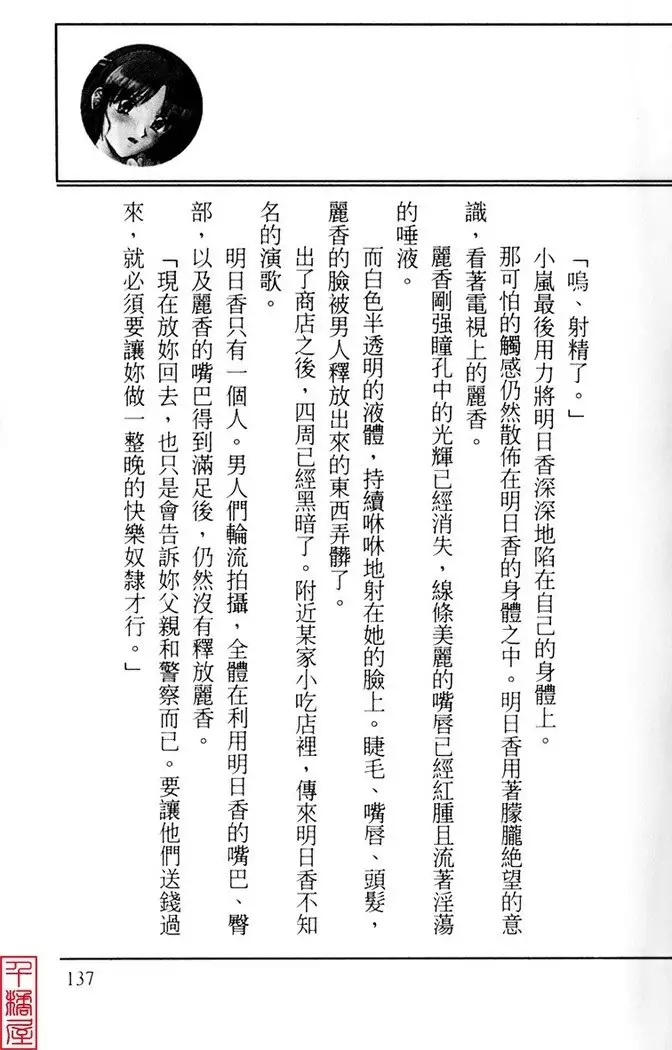 「嗚、射精了。」
小嵐最後用力將明日香深深地陷在自己的身體上。
那可怕的觸感仍然散佈在明日香的身體之中。明日香用著朦朧絕望的意
識，看著電視上的麗香。
麗香剛强瞳孔中的光輝已經消失，線條美麗的嘴唇已經紅腫且流著淫蕩
的唾液。
而白色半透明的液體，持續咻咻地射在她的臉上。睫毛、嘴唇、頭髮，
麗香的臉被男人釋放出來的東西弄髒了。
出了商店之後，四周已經黑暗了。附近某家小吃店裡，傳來明日香不知
名的演歌。
明日香只有一個人。男人們輪流拍攝，全體在利用明日香的嘴巴、臀
部，以及麗香的嘴巴得到滿足後，仍然沒有釋放麗香。
「現在放妳回去，也只是會告訴妳父親和警察而已。要讓他們送錢過
來，就必須要讓妳做一整晚的快樂奴隸才行。」
137
千橘屋